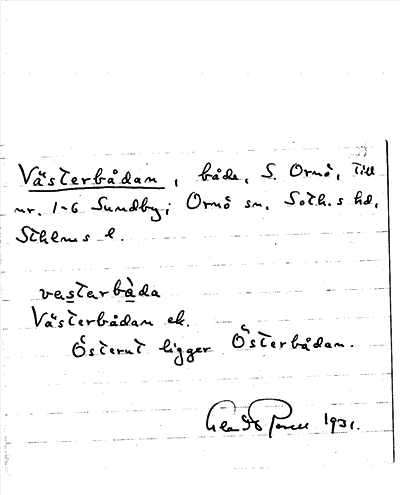 Västerbådan, båda, S. Ornö, Till
nr. 1-6 Sundby; Ornö sn, Soth.s hd,
Sthlms l.
vestarbåda
Västerbådan ek.
Österut ligger Österbådan.
1931.